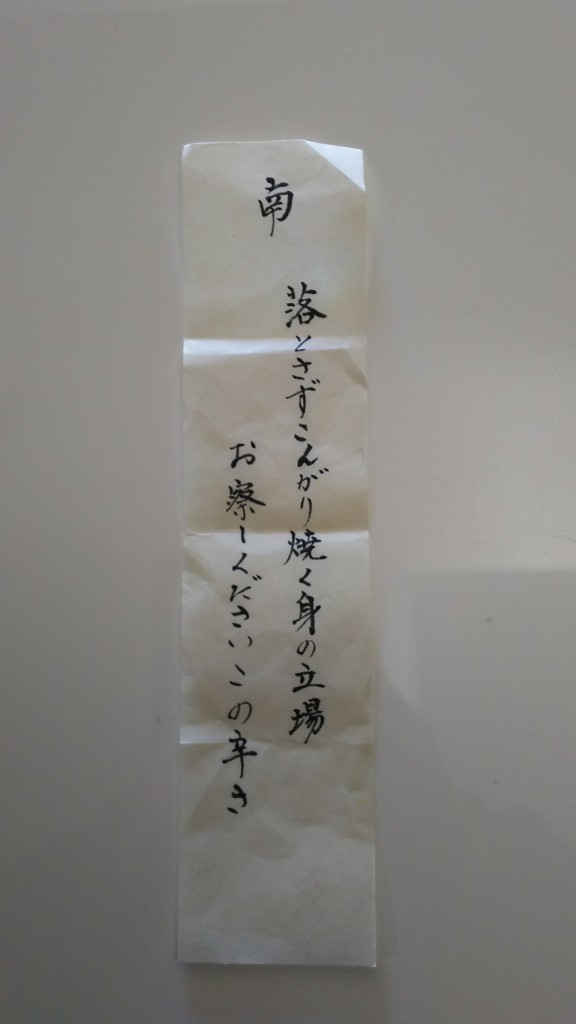 南
落とさずこんがり焼く身の立場
お察しくださいこの辛さ